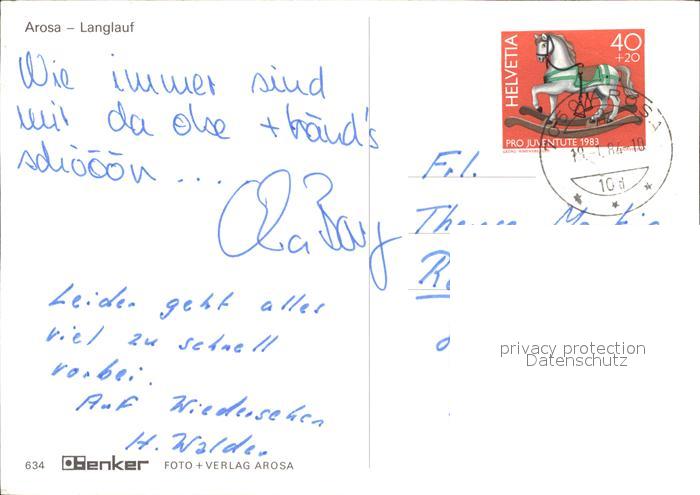 Arosa – Langlauf
Wie immer sind
mir da obe + händ's
schööön ...
Leider geht alles
viel zu schnell
vorbei.
Auf Wiedersehen
H. Walder
634 Denker FOTO + VERLAG AROSA
HELVETIA
40
+20
PRO JUVENTUTE 1983
AROSA
84-10
10 d
Frl.
privacy protection
Datenschutz